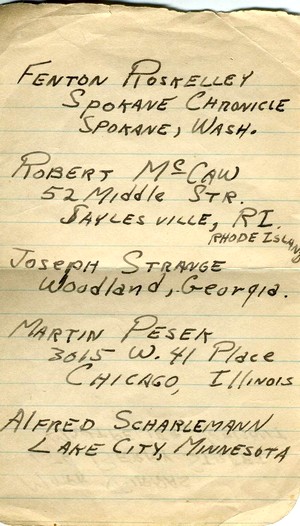 FENTON ROSKELLEY
SPOKANE CHRONICLE
SPOKANE, WASH.
ROBERT McCAW
52 MIDDLE STR.
SAYLESVILLE, RI.
RHODE ISLAND
JOSEPH STRANGE
WOODLAND, GEORGIA.
MARTIN PESEK
3015 W. 41 PLACE
CHICAGO, ILLINOIS
ALFRED SCHARLEMANN
LAKE CITY, MINNESOTA